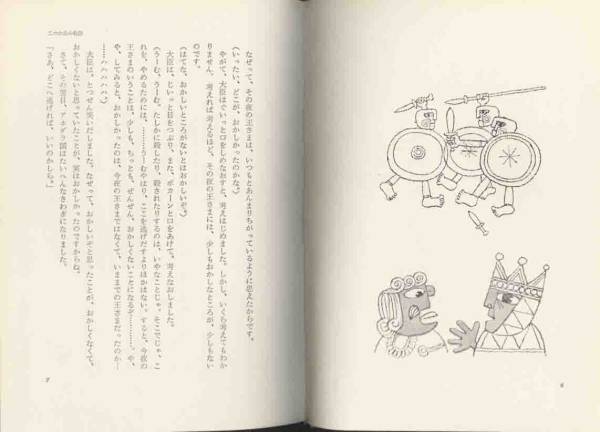 なぜって、その夜の王さまは、いつもとあんまりちがっているように思えたからです。
(いったい、どこが、おかしかったのかな。)
やがて、大臣はぐいっと口をしめなおすと、考えはじめました。しかし、いくら考えてもわか
りません。考えれば考えるほど、その夜の王さまには、少しもおかしなところが、少しもない
のです。
(はてな、おかしいところがないとはおかしいぞ。)
大臣は、じいっと目をつぶり、また、ポカーンと口をあけて、考えなおしました。
(うーむ、うーむ。たしかに殺したり、殺されたりするのは、いやなことじゃ。そこでじゃ、こ
れを、やめるためには、………うーむやはり、ここを逃げだすよりほかはない。すると、今夜の
王さまのいうことは、少しも、ちっとも、ぜんぜん、おかしくないことになるぞ……。や、
や、してみると、おかしかったのは、今夜の王さまではなくて、いままでの王さまだったのか―
……ハハハハハ。)
大臣は、とつぜん笑いだしました。なぜって、おかしいぞと思ったことが、おかしくなくて、
おかしくないと思っていたことが、実はおかしかったのですからね。
さて、その翌日、アホダラ国はたいへんなさわぎになりました。
「さあ、どこへ逃げれば、いいのかしら。」
7
6